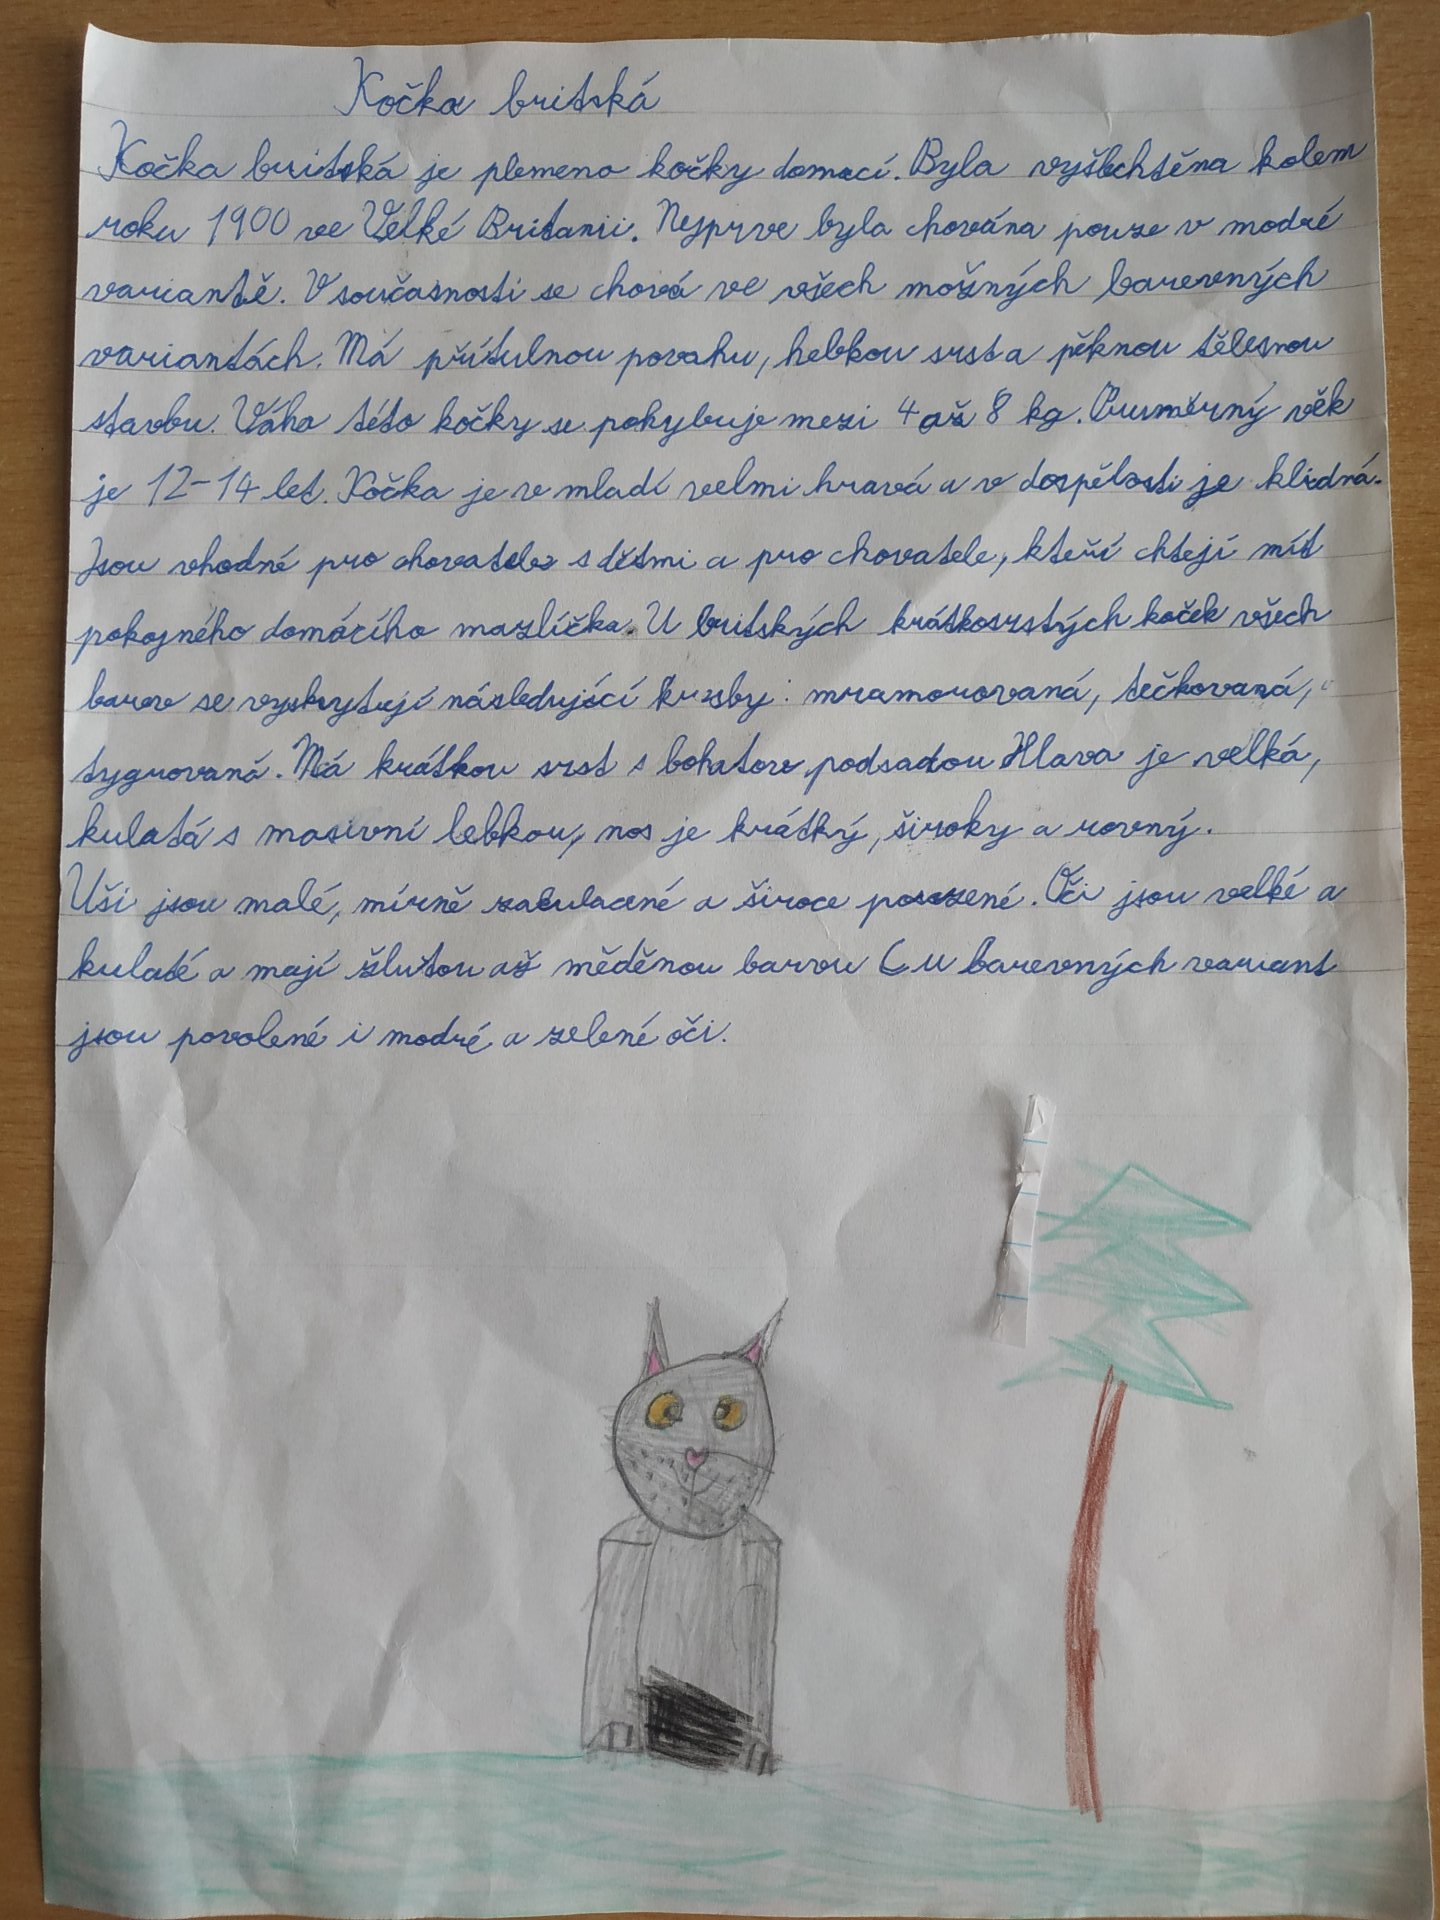 Kočka britská
Kočka britská je plemeno kočky domací. Byla vyšlechtěna kolem
roku 1900 ve Velké Britanii. Nejprve byla chována pouze v modré
variantě. V současnosti se chová ve všech možných barevných
variantách. Má přítulnou povahu, hebkou srst a pěknou tělesnou
stavbu. Váha této kočky se pohybuje mezi 4 až 8 kg. Pruměrný věk
je 12-14 let. Kočka je v mladí velmi hravá a v dospělosti je klidná.
Jsou vhodné pro chovatele s dětmi a pro chovatele, kteří chtejí mít
pokojného domácího mazlíčka. U britských krátkosrstých koček všech
barev se vyskytují následující kresby: mramorovaná, tečkovaná,
tygrovaná. Má krátkou srst s bohatou podsadou Hlava je velká,
kulatá s masivní lebkou, nos je krátký, široky a rovný.
Uši jsou malé, mírně zakulacené a široce posazené. Oči jsou velké a
kulaté a mají žlutou až měděnou barvu (u barevných variant
jsou povolené i modré a zelené oči.